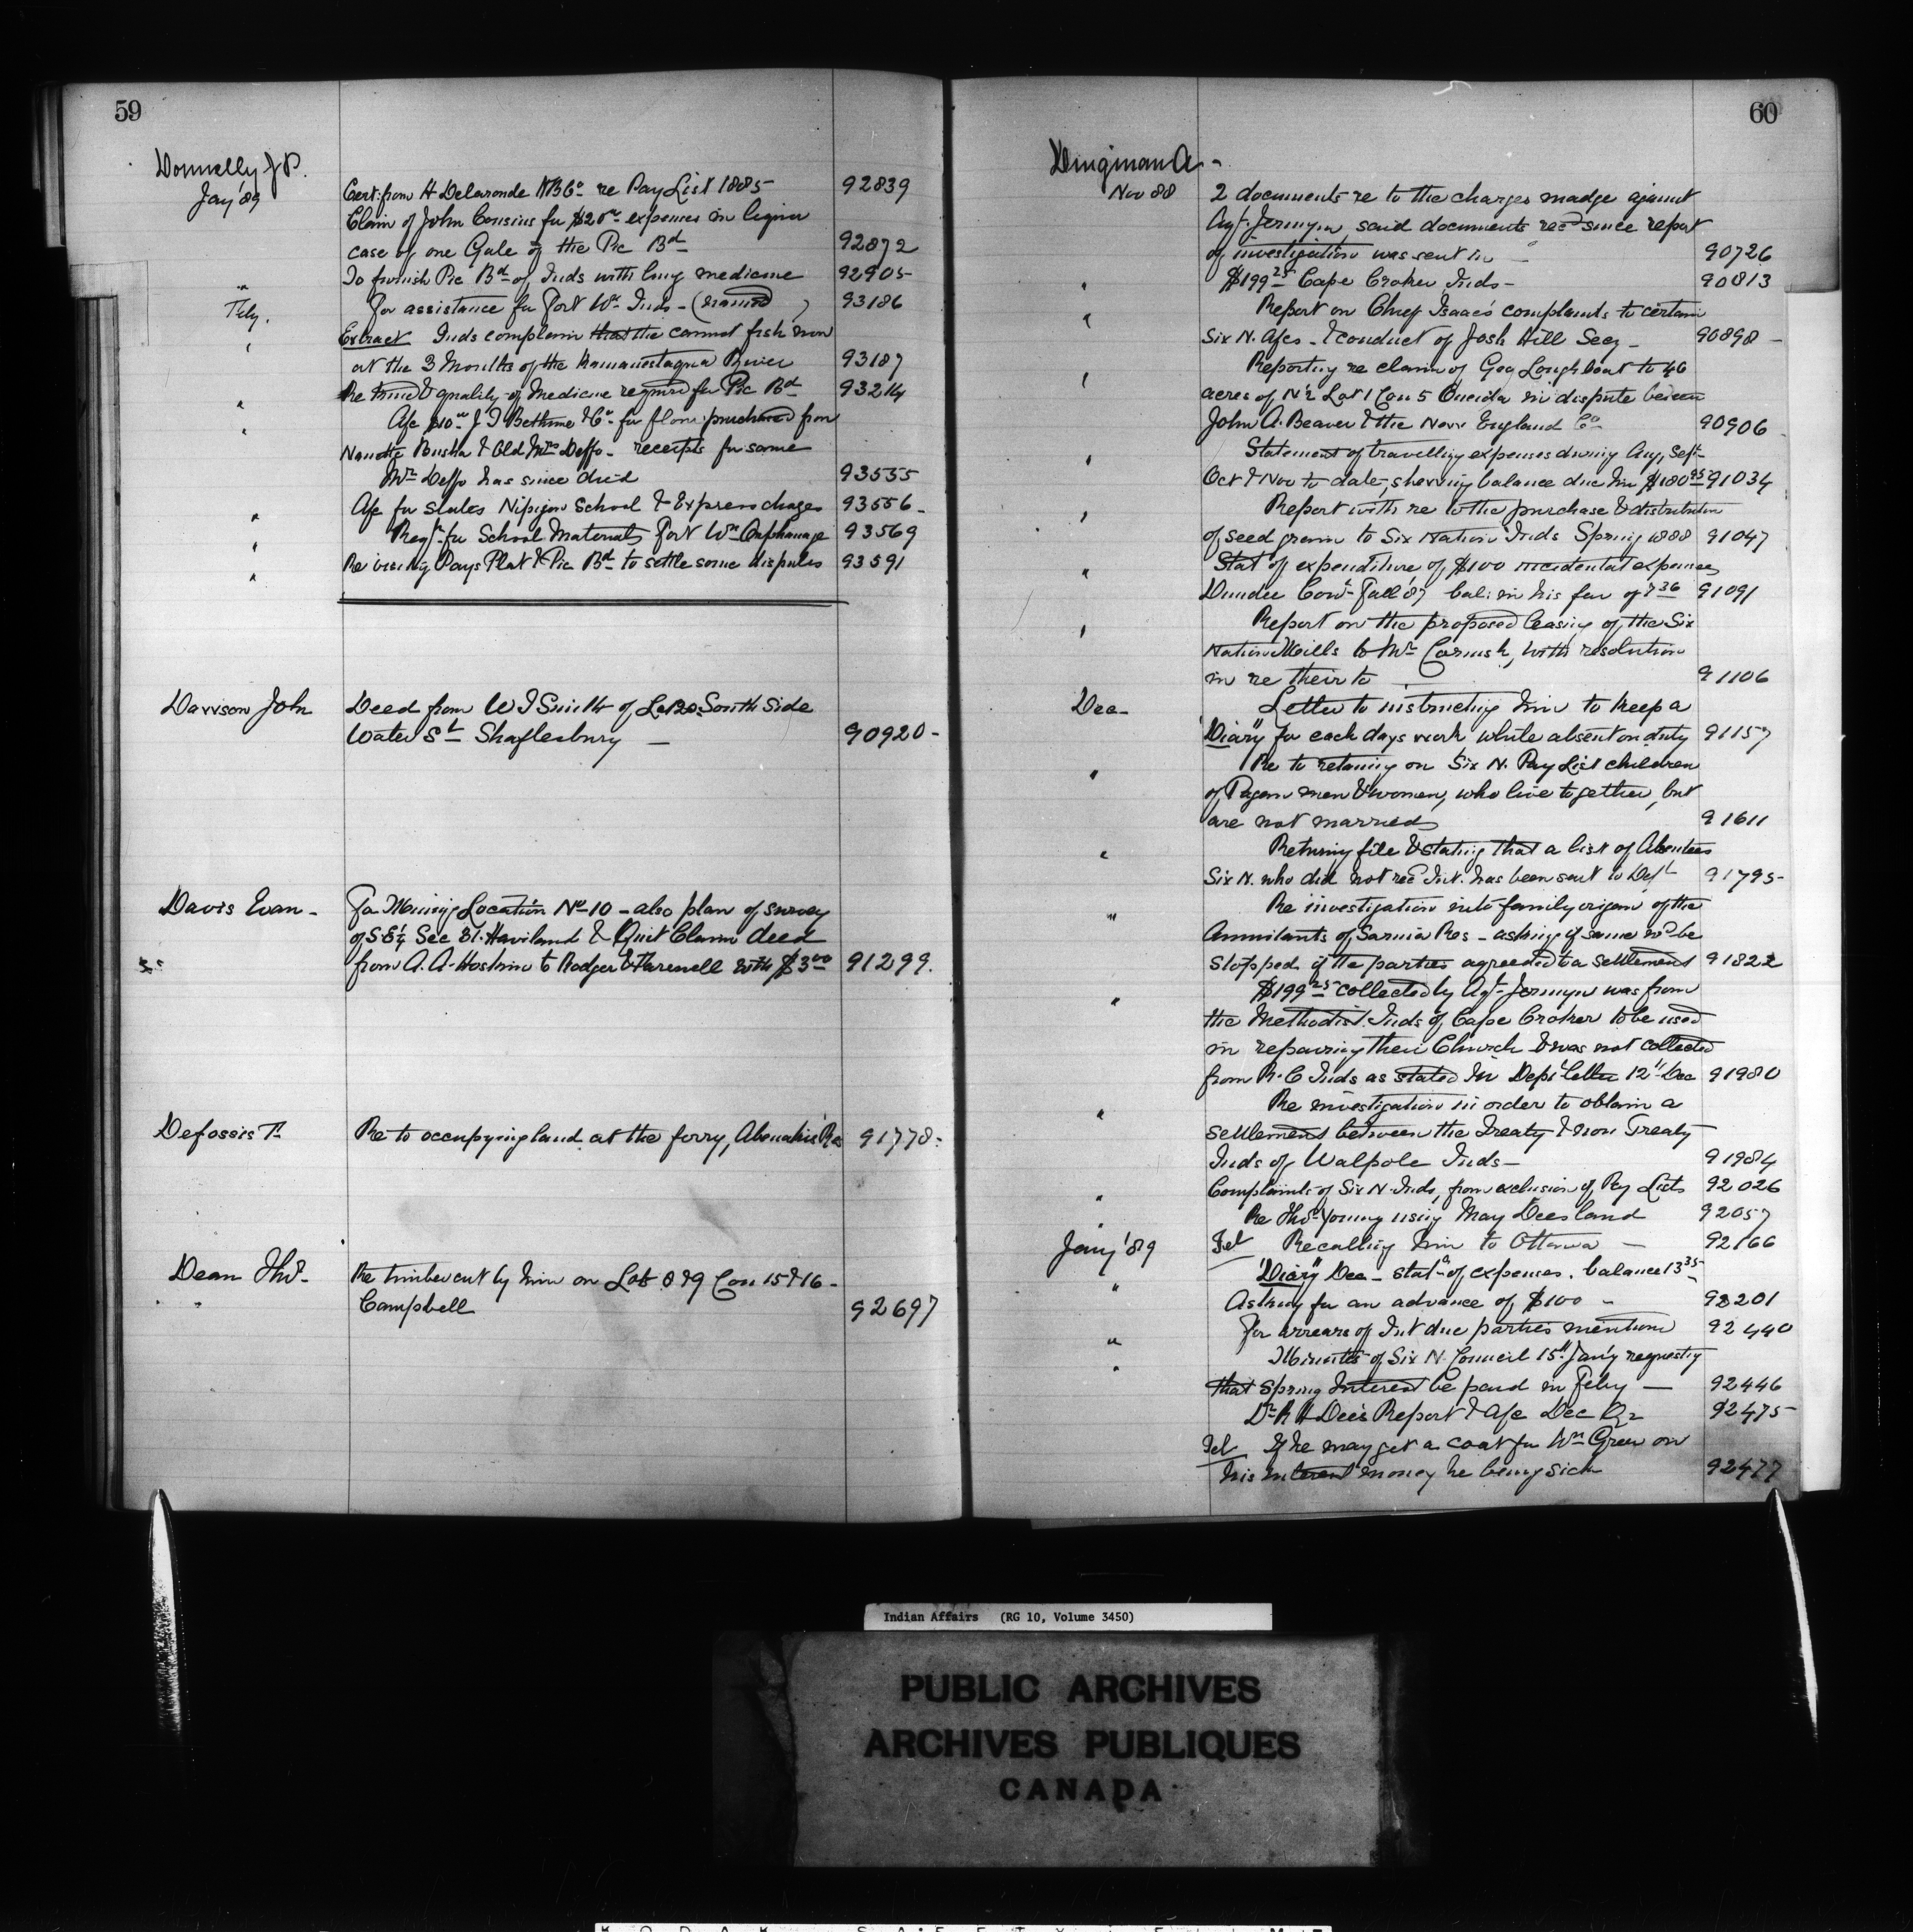 59
Donnelly J P.
Jany '89 Cert: from H Delaronde HBCo re Pay List 1885 92839
Claim of John Cousins for $20.00 expenses in liquor
case of one Gale of the Pic Bd 92872
" To furnish Pic Bd of Inds with Curry medicine 92905
Feby. For assistance for Fort Wm Inds - (named) 93186
" Extract Inds complain that the cannot fish now
at the 3 Mouths of the Kamanestaqua River 93187
" Re kind & quality of Medicine required for Pic Bd 93214
" A/c $10.00 J J Bethune & Co for flour purchased from
Busha & Old Mrs Deffo - receipts for same
Mrs Deffo has since died 93555
" A/c for slates Nipigon School & Express charges 93556 -
" Reqn for School Materials Fort Wm Orphanage 93569
" Re visiting Pays Plat & Pic Bd to settle some disputes 93591
Davison John Deed from W J Smith of Lot 20 South Side
Water St Shaftesbury - 90920 -
Davis Evan - For Mining Location No 10 - also plan of survey
of S.E¼ Sec 31. Haviland & Quit Claim deed
from A. A. Hoskin to Rodger & Farewell with $3.00 91299.
Defossis T. Re to occupying land at the ferry, Abenakis Res 91778 -
Dean Thos - Re timber cut by him on Lots 8 & 9 Con 15 & 16 -
" Campbell 92697
60
Dingman A -
Nov 88 2 documents re to the charges madge against
Agt. Jermyn, said documents recd since report
of investigation was sent in - 90726
" $199.25 Cape Croker Inds - 90813
" Report on Chief Isaac's complaints to certain
Six N. A/cs - & conduct of Josh Hill Secy - 90898 -
" Reporting re claim of Geo Longboat to 46
acres of N½ Lot 1 Con 5 Oneida in dispute between
John A. Beaver & the New England Co 90906
" Statement of travelling expenses during Aug, Sept -
Oct & Nov to date, shewing balance due him $180.95 91034
" Report with re to the purchase & distribution
of seed grain to Six Nation Inds Spring 1888 91047
" Stat of expenditure of $100 incidental expenses
Dundee Comn Fall '87 bal: in his favr of 7.36 91091
" Report on the proposed leasing of the Six
Nation Mills to Mr Cornish, with resolution
in re their to 91106
Dec - Letter to instructing him to keep a
"Diary" for each days work while absent on duty 91157
" Re to retaining on Six N. Pay List children
of Pagan men & women, who live together, but
are not married 91611
" Returning file & stating that a list of Absentees
Six N. who did not recd Int. has been sent to Dept 91795 -
" Re investigation into family origin of the
Annuitants of Sarnia Res - asking if same wd be
stopped if the parties agreed to a settlement 91822
" $199.25 collected by Agt Jermyn was from
the Methodist Inds of Cape Croker to be used
in repairing their Church & was not collected
from R. C Inds as stated in Depts letter 12th Dec 91980
" Re investigation in order to obtain a
settlement between the Treaty & non Treaty
Inds of Walpole Inds - 91984
" Complaints of Six N. Inds, from exclusion of Pay Lists 92026
" Re Thos Young using May Dees land 92057
Jany '89 Tel Recalling him to Ottawa - 92166
" "Diary" Dec - stat of expenses. balance 13.35
Asking for an advance of $100 - 92201
" For arrears of Int due parties mentioned 92440
" Minutes of Six N. Council 15th Jan'y requesting
that Spring Interest be paid in Feby - 92446
Dr R H Dee's Report & A/c Dec Qr 92475 -
Tel If he may get a coat for Wm Green on
his interest money he being sick 92477
Indian Affairs (RG 10, Volume 3450)
PUBLIC ARCHIVES
ARCHIVES PUBLIQUES
CANADA